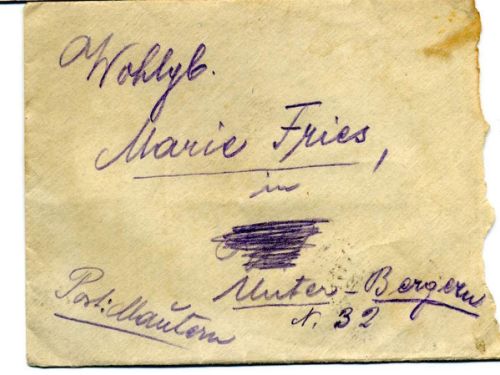 Wohlgb.
Marie Fries,
in
Unter-Bergern
N. 32
Post: Mautern